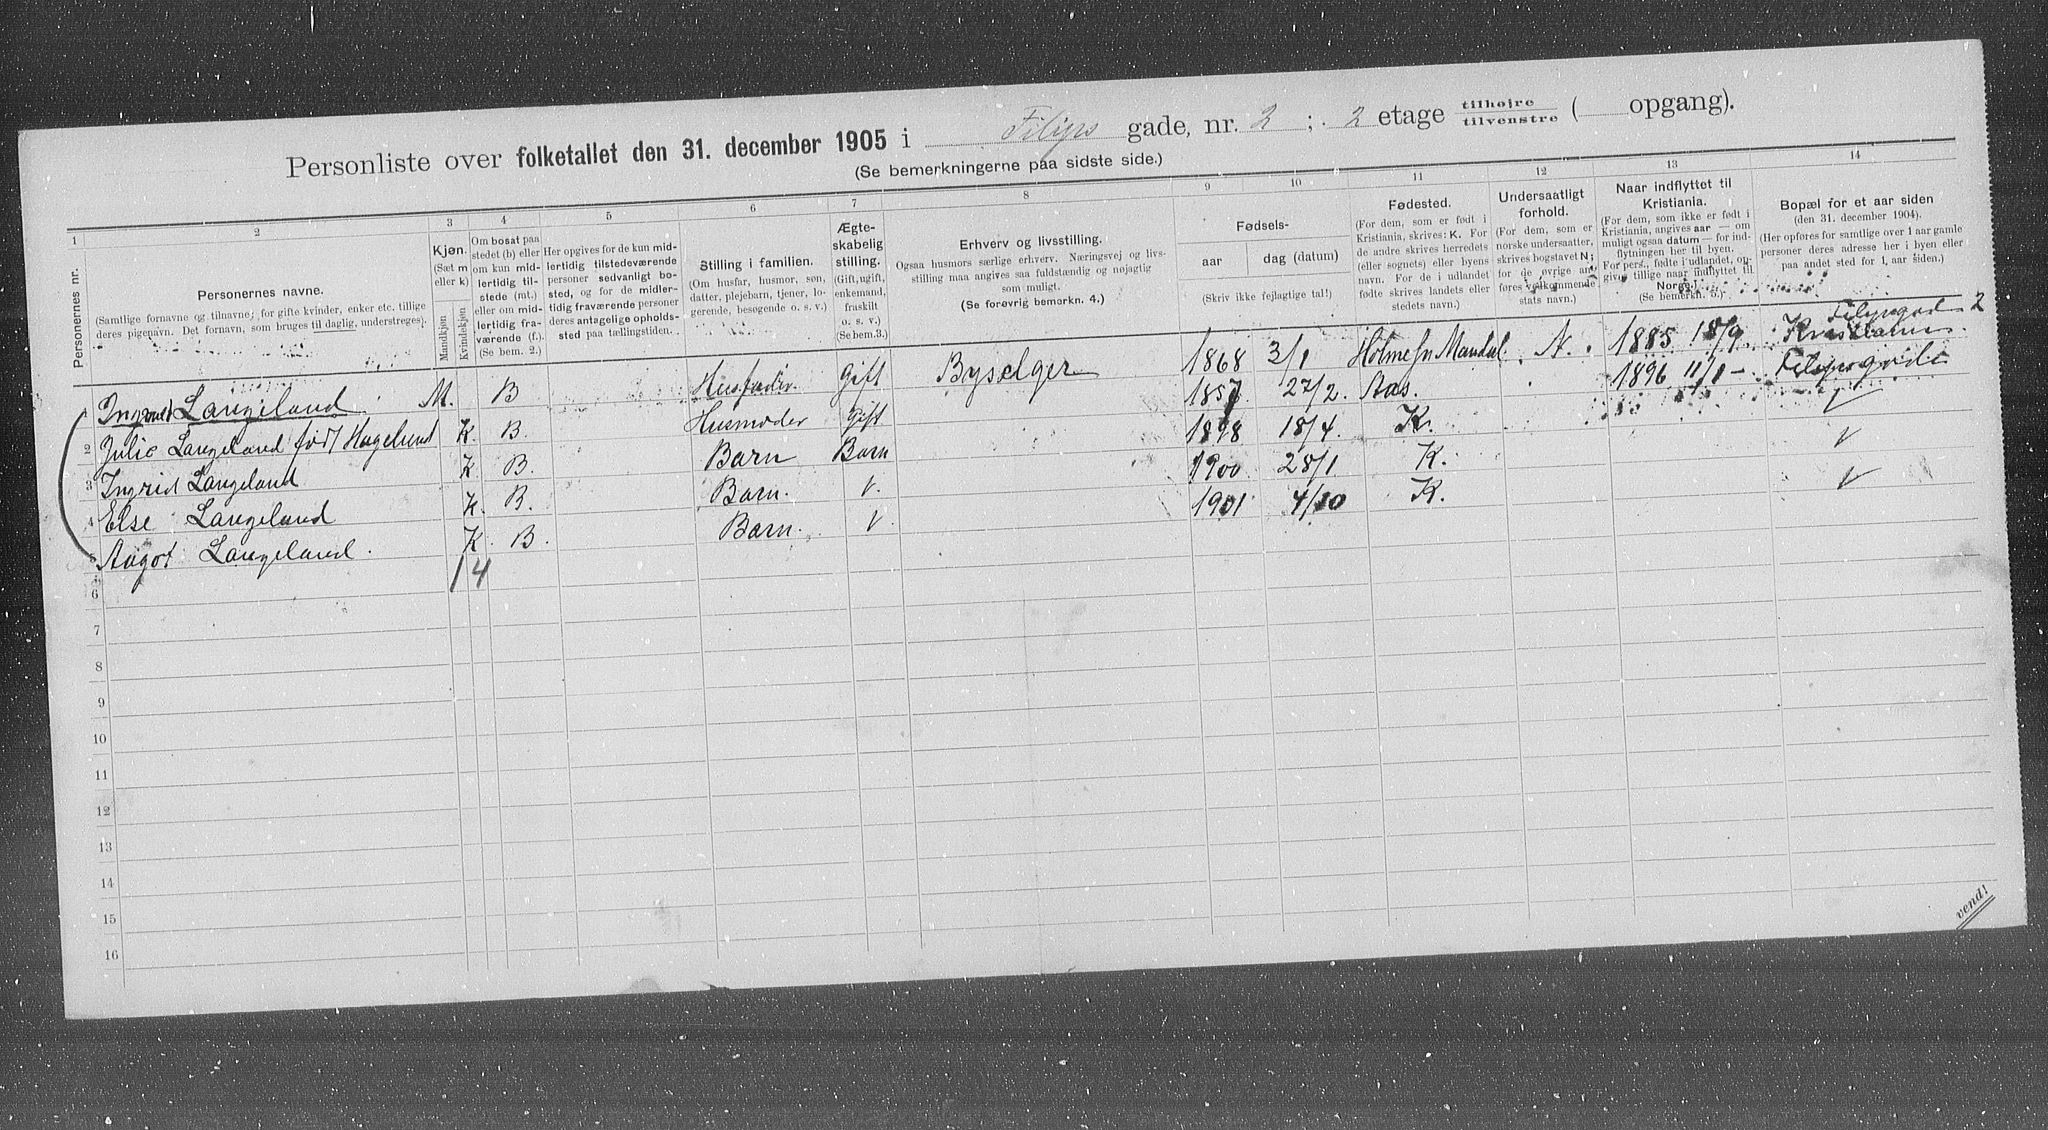 Personliste over folketallet den 31. december 1905 i Filips gade, nr. 2; 2 etage tilhøjre tilvenstre ( opgang).
(Se bemerkningerne paa sidste side.)
1 2 3 4 5 6 7 8 9 10 11 12 13 14
Personernes nr.
Personernes navne.
(Samtlige fornavne og tilnavne; for gifte kvinder, enker etc. tillige
deres pigenavn. Det fornavn, som bruges til daglig, understreges).
Kjøn.
(Sæt m
eller k)
Mandkjøn
Kvindekjøn
Om bosat paa
stedet (b) eller
om kun mid-
lertidig til-
stede (mt.)
eller om mid-
lertidig fra-
værende (f.).
(Se bem. 2.)
Her opgives for de kun mid-
lertidig tilstedeværende
personer sedvanligt bo-
sted, og for de midler-
tidig fraværende personer
deres antagelige opholds-
sted paa tællingstiden.
Stilling i familien.
(Om husfar, husmor, søn,
datter, plejebarn, tjener, lo-
gerende, besøgende o. s. v.)
Ægte-
skabelig
stilling.
(Gift, ugift,
enkemand,
fraskilt
o. s. v.)
(Se bem. 3.)
Erhverv og livsstilling.
Ogsaa husmors særlige erhverv. Næringsvej og livs-
stilling maa angives saa fuldstændig og nøjagtig
som muligt.
(Se forøvrig bemerkn. 4.)
Fødsels-
aar
dag (datum)
(Skriv ikke fejlagtige tal!)
Fødested.
(For dem, som er født i
Kristiania, skrives: K. For
de andre skrives herredets
(eller sognets) eller byens
navn. For de i udlandet
fødte skrives landets eller
stedets navn.)
Undersaatligt
forhold.
(For dem, som er
norske undersaatter,
skrives bogstavet N;
for de øvrige an-
føres vedkommende
stats navn.)
Naar indflyttet til
Kristiania.
(For dem, som ikke er født i
Kristiania, angives aar — om
muligt ogsaa datum — for ind-
flytningen her til byen.
For pers., fødte i udlandet, op-
gives tillige naar indflyttet til
Norge.)
(Se bemerkn. 5.)
Bopæl for et aar siden
(den 31. december 1904).
(Her opføres for samtlige over 1 aar gamle
personer deres adresse her i byen eller
paa andet sted for 1 aar siden.)
1 Langeland M. B Husfader Gift Byselger 1868 3/1 Holme pr Mandal N. 1885 18/9 Filipsgad 2 Kristiania.
2 Julie Langeland født Hagelund K. B. Husmoder Gift 1857 27/2 Aas. 1896 11/1 - Filipsgade
3 Ingrid Langeland K B. Barn Barn 1898 18/4 K. V
4 Else Langeland K. B. Barn. V. 1900 28/1 K. V
5 Aagot Langeland. K B. Barn. V 1901 4/10 K. V
1 4
6
7
8
9
10
11
12
13
14
15
16
vend!